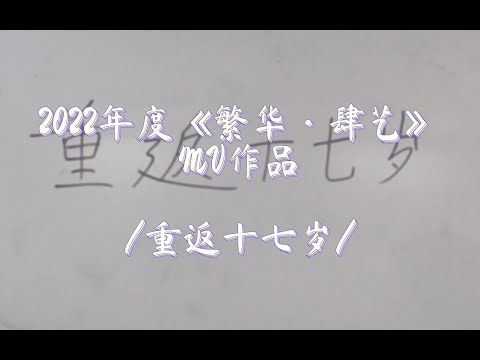 2022年度《繁华·肆艺》
MV作品
重返十七岁
/重返十七岁/